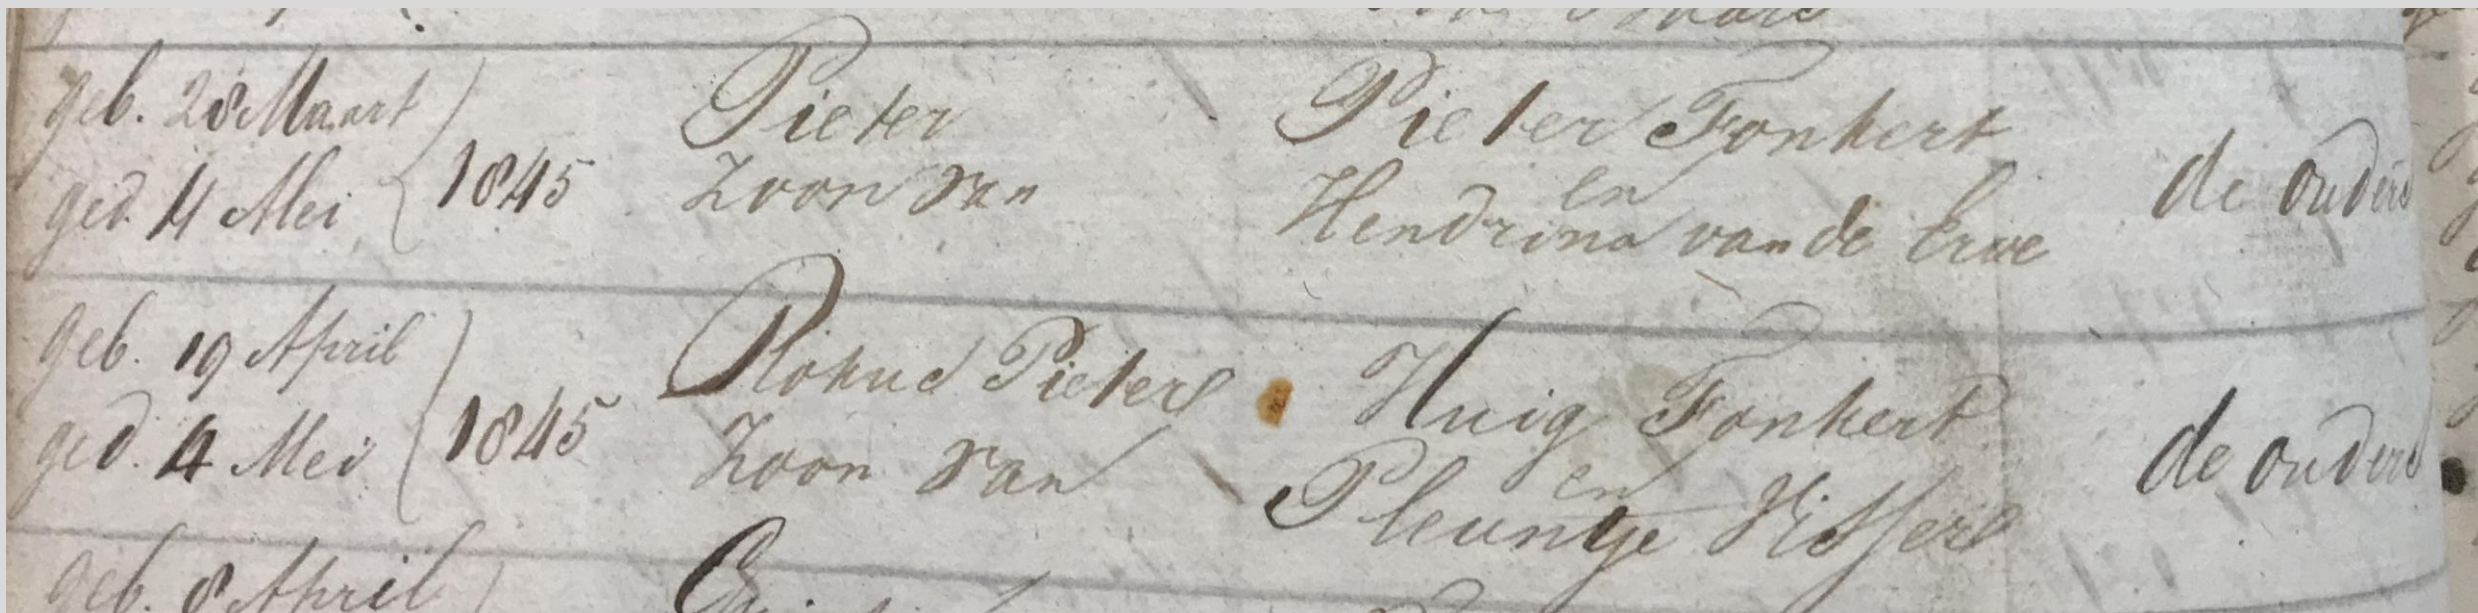 geb. 28 Maart
ged. 4 Mei
1845
Pieter
Zoon van
Pieter Fonkert
en
Hendrina van de Erve
de ouders
geb. 19 April
ged. 4 Mei
1845
Pieters
Zoon van
Huig Fonkert
en
Pleuntje Vissers
de ouders
geb. 8 April